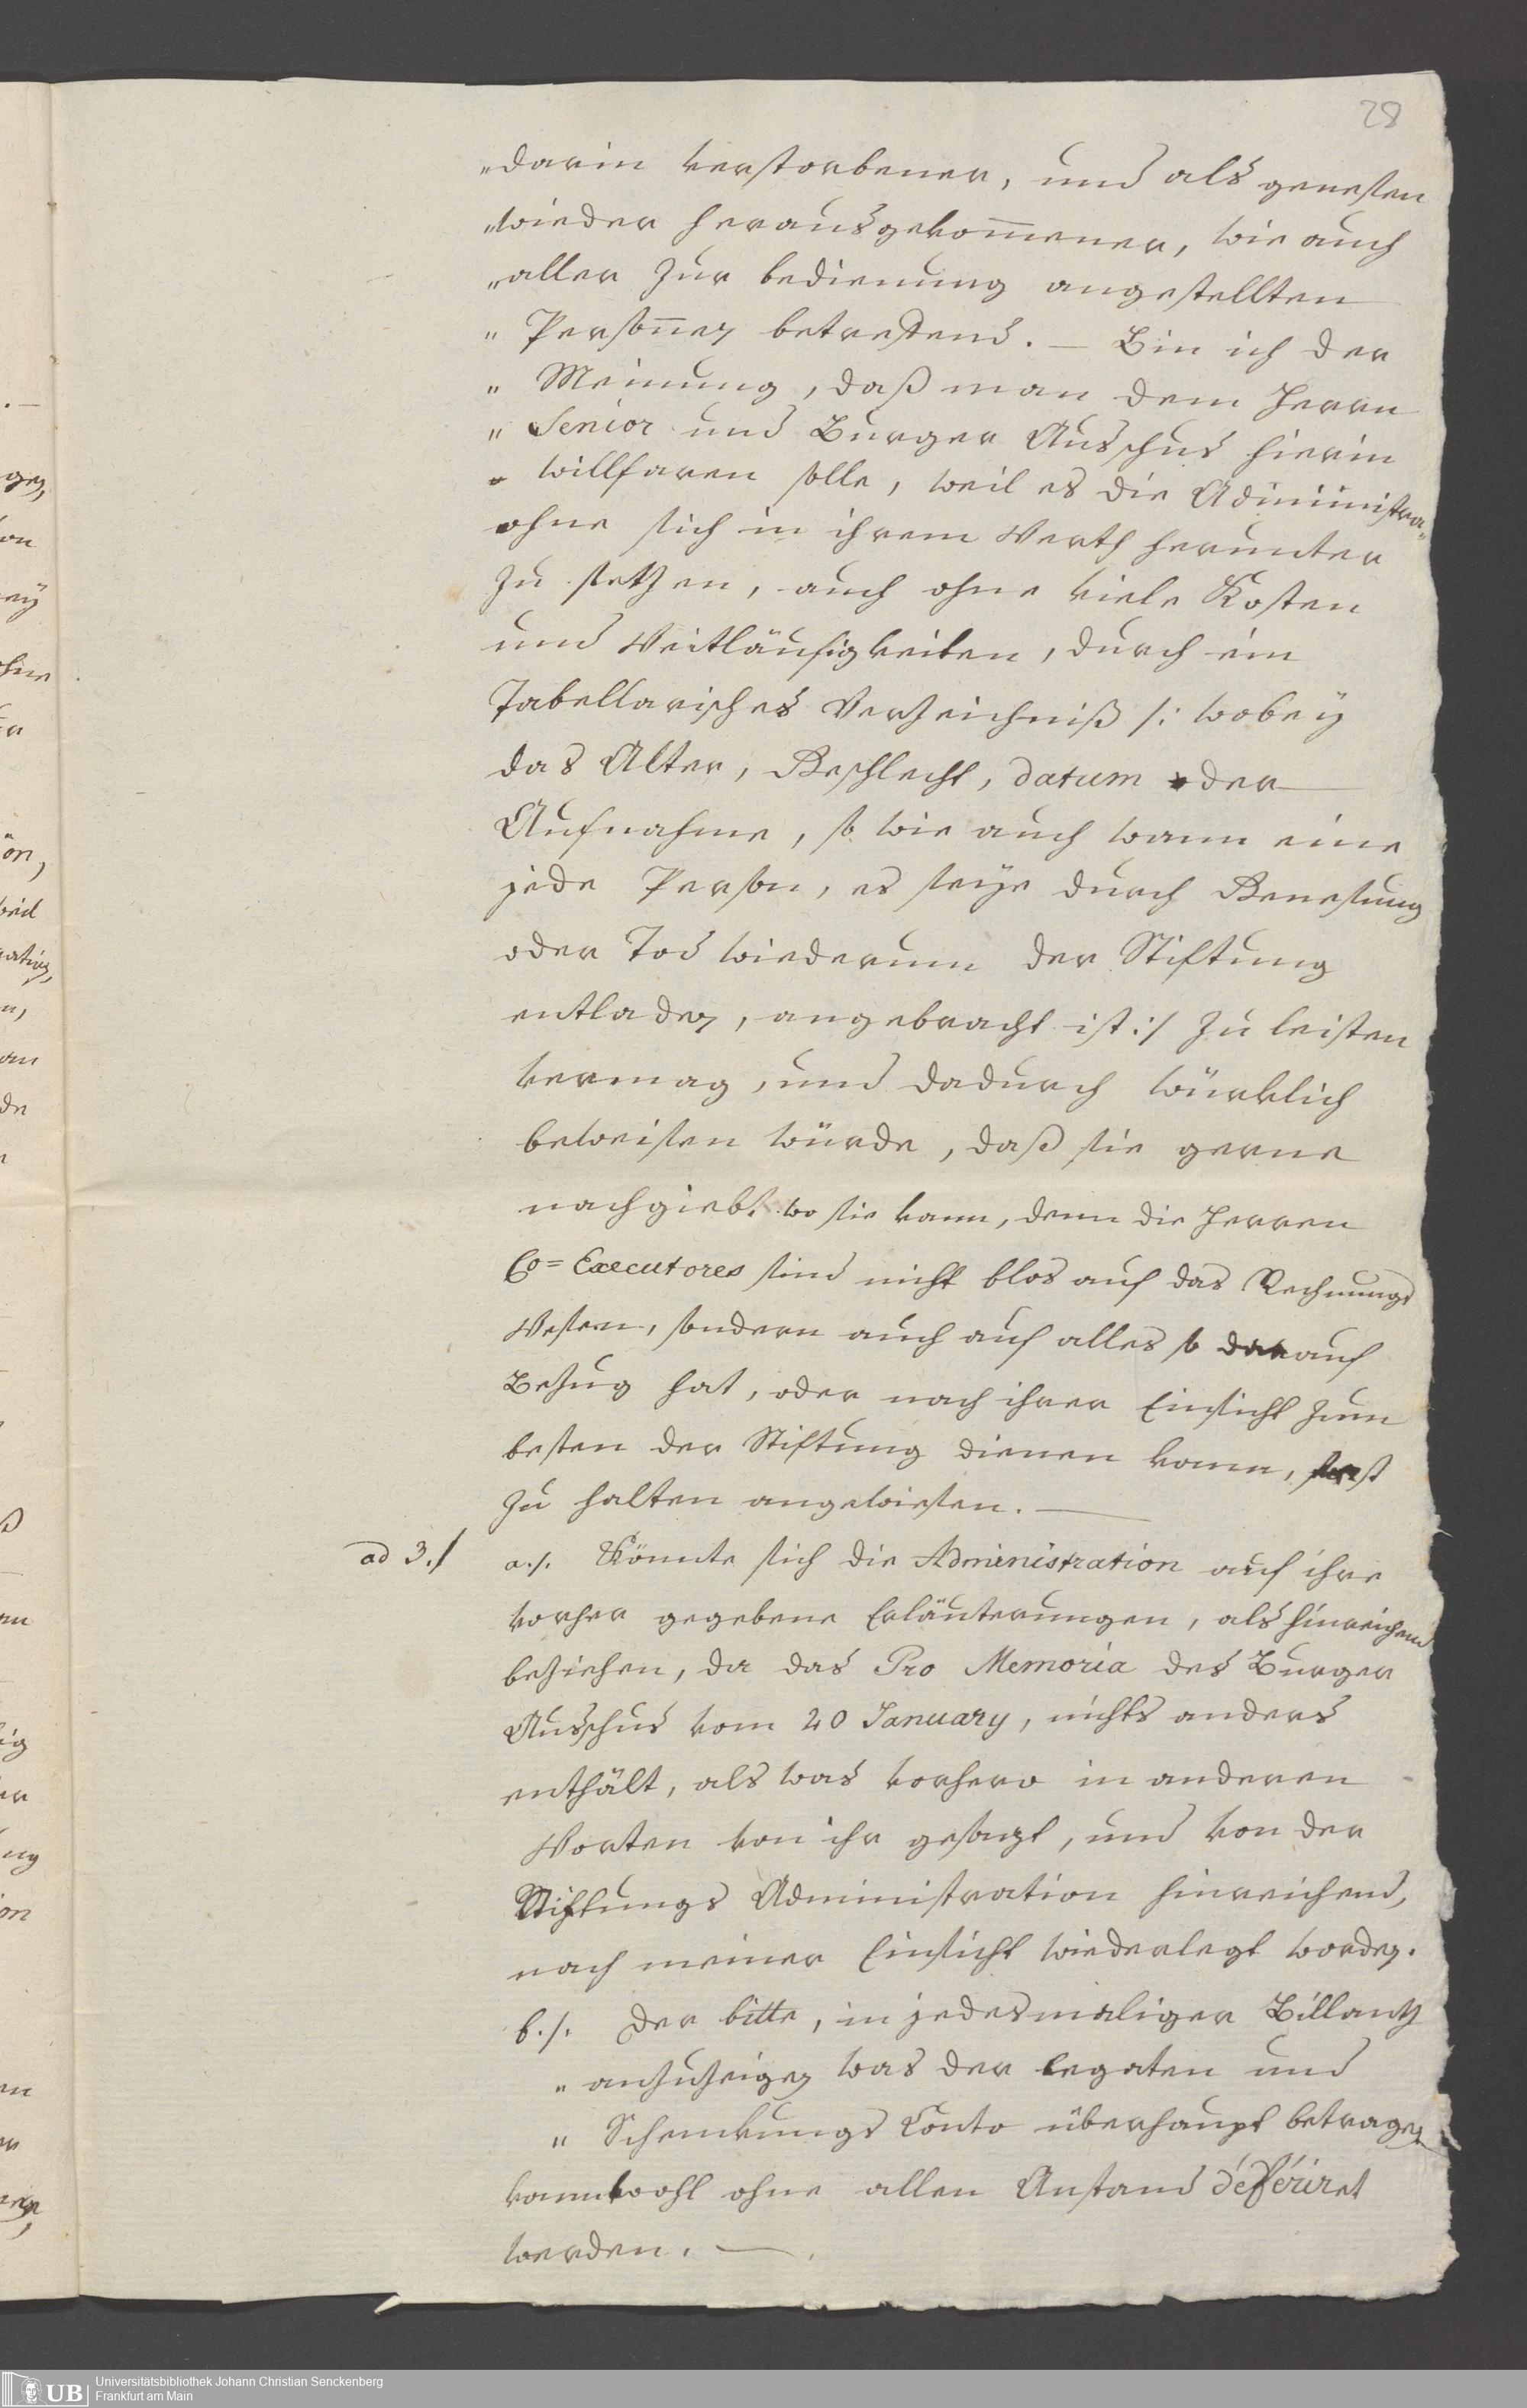 28
„darin verstorbener, und als genesen
„wieder herausgekom̄ener, wie auch
„aller zur bedienung angestellten
„ Persone͞n betrefend. — Bin ich der
„ Meinung, daß man dem Herrn
„ Senior und Burger Ausschus hierin
„ willfaren solle, weil es die Administra„
ohne sich in ihrem Werth herunter
zu setzen, auch ohne viele Kosten
und Weitläufigkeiten, durch ein
Tabellarisches Verzeichniß /: wobey
das Alter, Geschlecht, datum der
Aufnahme, so wie auch wann eine
jede Person, es seye durch Genesung
oder Tod wiederum der Stiftung
entladen, angebracht ist :/ zu leisten
vermag, und dadurch würklich
beweisen würde, daß sie gerne
nachgiebt wo sie kann, denn die Herren
Co=Executores sind nicht blos auf das Rechnungs
Wesen, sondern auch auf alles so darauf
Bezug hat, oder nach ihrer Einsicht zum
besten der Stiftung dienen kann, fest
zu halten angewiesen. —
ad 3./ a./. Könnte sich die Administration auf ihre
vorher gegebene Erläuterungen, als hinreichend
beziehen, da das Pro Memoria des Burger
Ausschus vom 20 January, nichts anders
enthält, als was vorhero in anderen
Worten von ihr gesagt, und von der
Stiftungs Administration hinreichend,
nach meiner Einsicht wiederlegt worden.
b./. Der bitte, in jedesmaliger Billantz
„ anzuzeigen was der legaten und
„ Schenkungs Conto überhaupt betragen
kann wohl ohne allen Anstand déferiret
werden. —
UB
Universitätsbibliothek Johann Christian Senckenberg
Frankfurt am Main